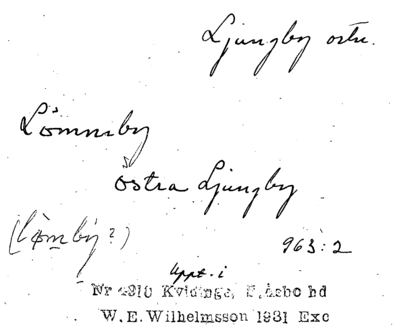 Ljungby östr.
Lömmby
Östra Ljungby
(lömby?)
963:2
Uppt. i
Nr 4210 Kvidinge, N. Åsbo hd
W.E.Wilhelmsson 1931 Exc